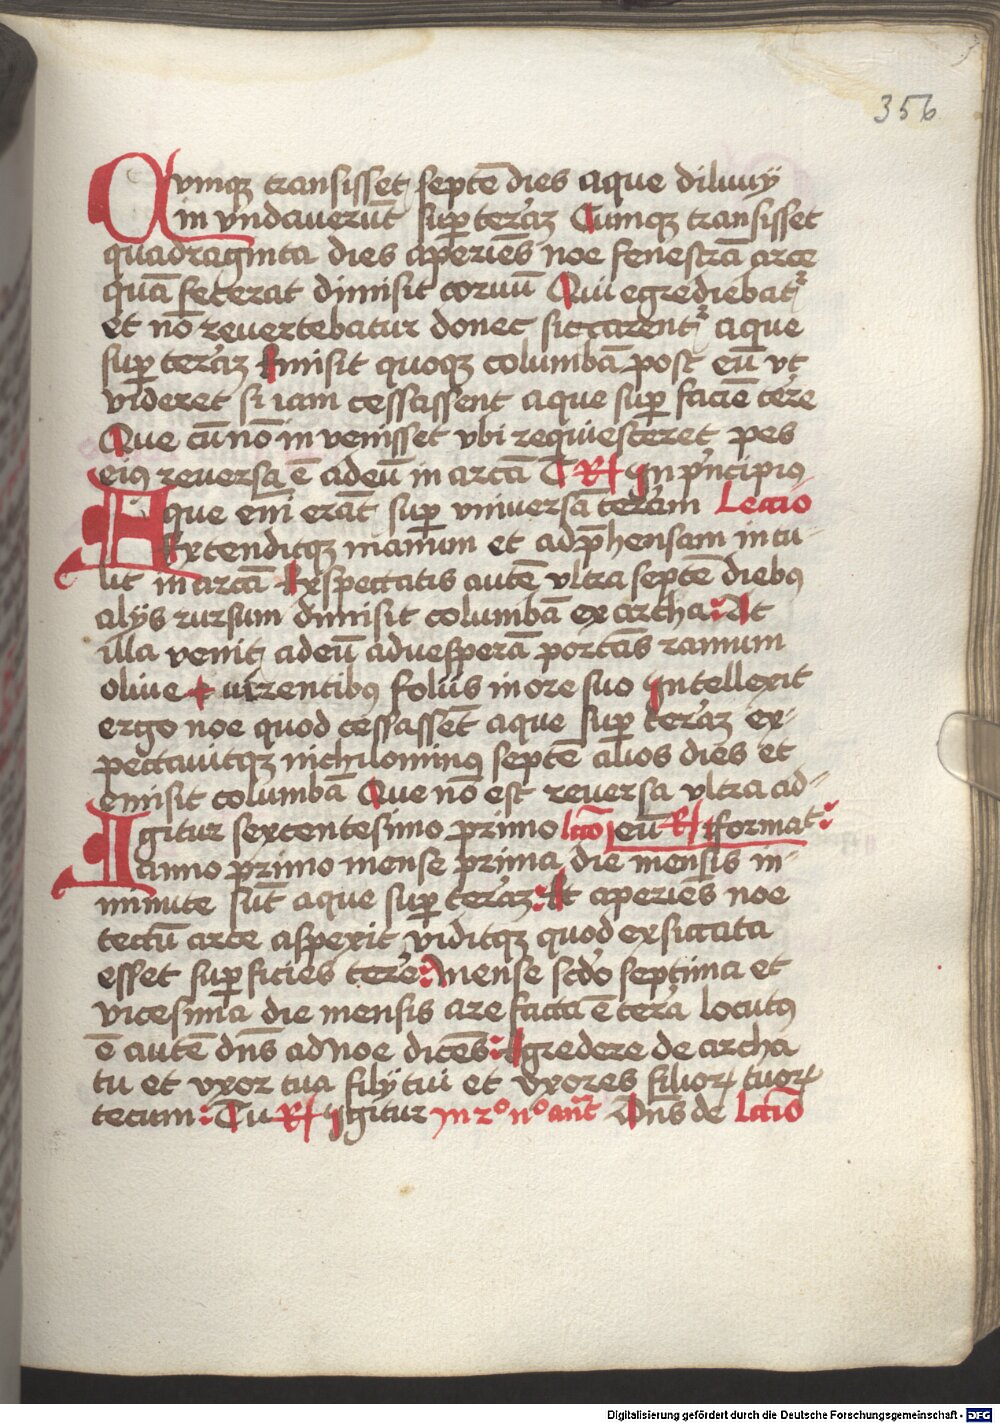 356
Cvmqꝫ transisset septē dies aque diluuij
in vndauerūt sup̱ terꝛaꝫ Cumqꝫ transisset
quadraginta dies aperiēs noe fenestrā arce
quā fecerat dimisit coruū Qui egrediebatᷣ
et nō reuertebatur donec siccarentᷣ aque
sup̱ terraꝫ Emisit quoqꝫ columbā post eū vt
videret si iam cessassent aque sup̱ faciē terre
Que cū nō in venisset vbi requiesceret pes
eiꝰ reuersa ē adeū in arcā T R̸ In pͥncipiꝰ
Aque eni erāt sup̱ vniuersā terram Lectio
Extenditqꝫ manum et adp̄hensam in tu-
lit in arcā Exspectatis autē vltra septē diebꝰ
alijs rursum dimisit columbā ex archa At
illa venit adeū aduesperā portās ramum
oliue + uirentibꝰ foliis in ore suo Intellexit
ergo noe quod cessassēt aque sup̱ terraꝫ ex-
pectauitqꝫ nichilominꝰ septē alios dies et
emisit columbā Que nō est reuersa vltra ad-
Igitur sexcentesimo primo lctō eū R̸ Fformat
anno primo mense prima die mensis in-
minute sūt aque sup̱ terraꝫ Et aperiēs noe
tectū arce aspexit viditqꝫ quod exsiccata
esset sup̱ficies terre Mense scd̄o septima et
vicesima die mensis are facta ē terra locutꝰ
ē autē dn̄s ad Noe dicēs Egredere de archa
tu et vxor tua filij tui et vxores filioꝝ tuoꝝ
tecum Tu R̸ Igitur in 2º nº ant Dn̄s de lctiō
Digitalisierung gefördert durch die Deutsche Forschungsgemeinschaft - DFG